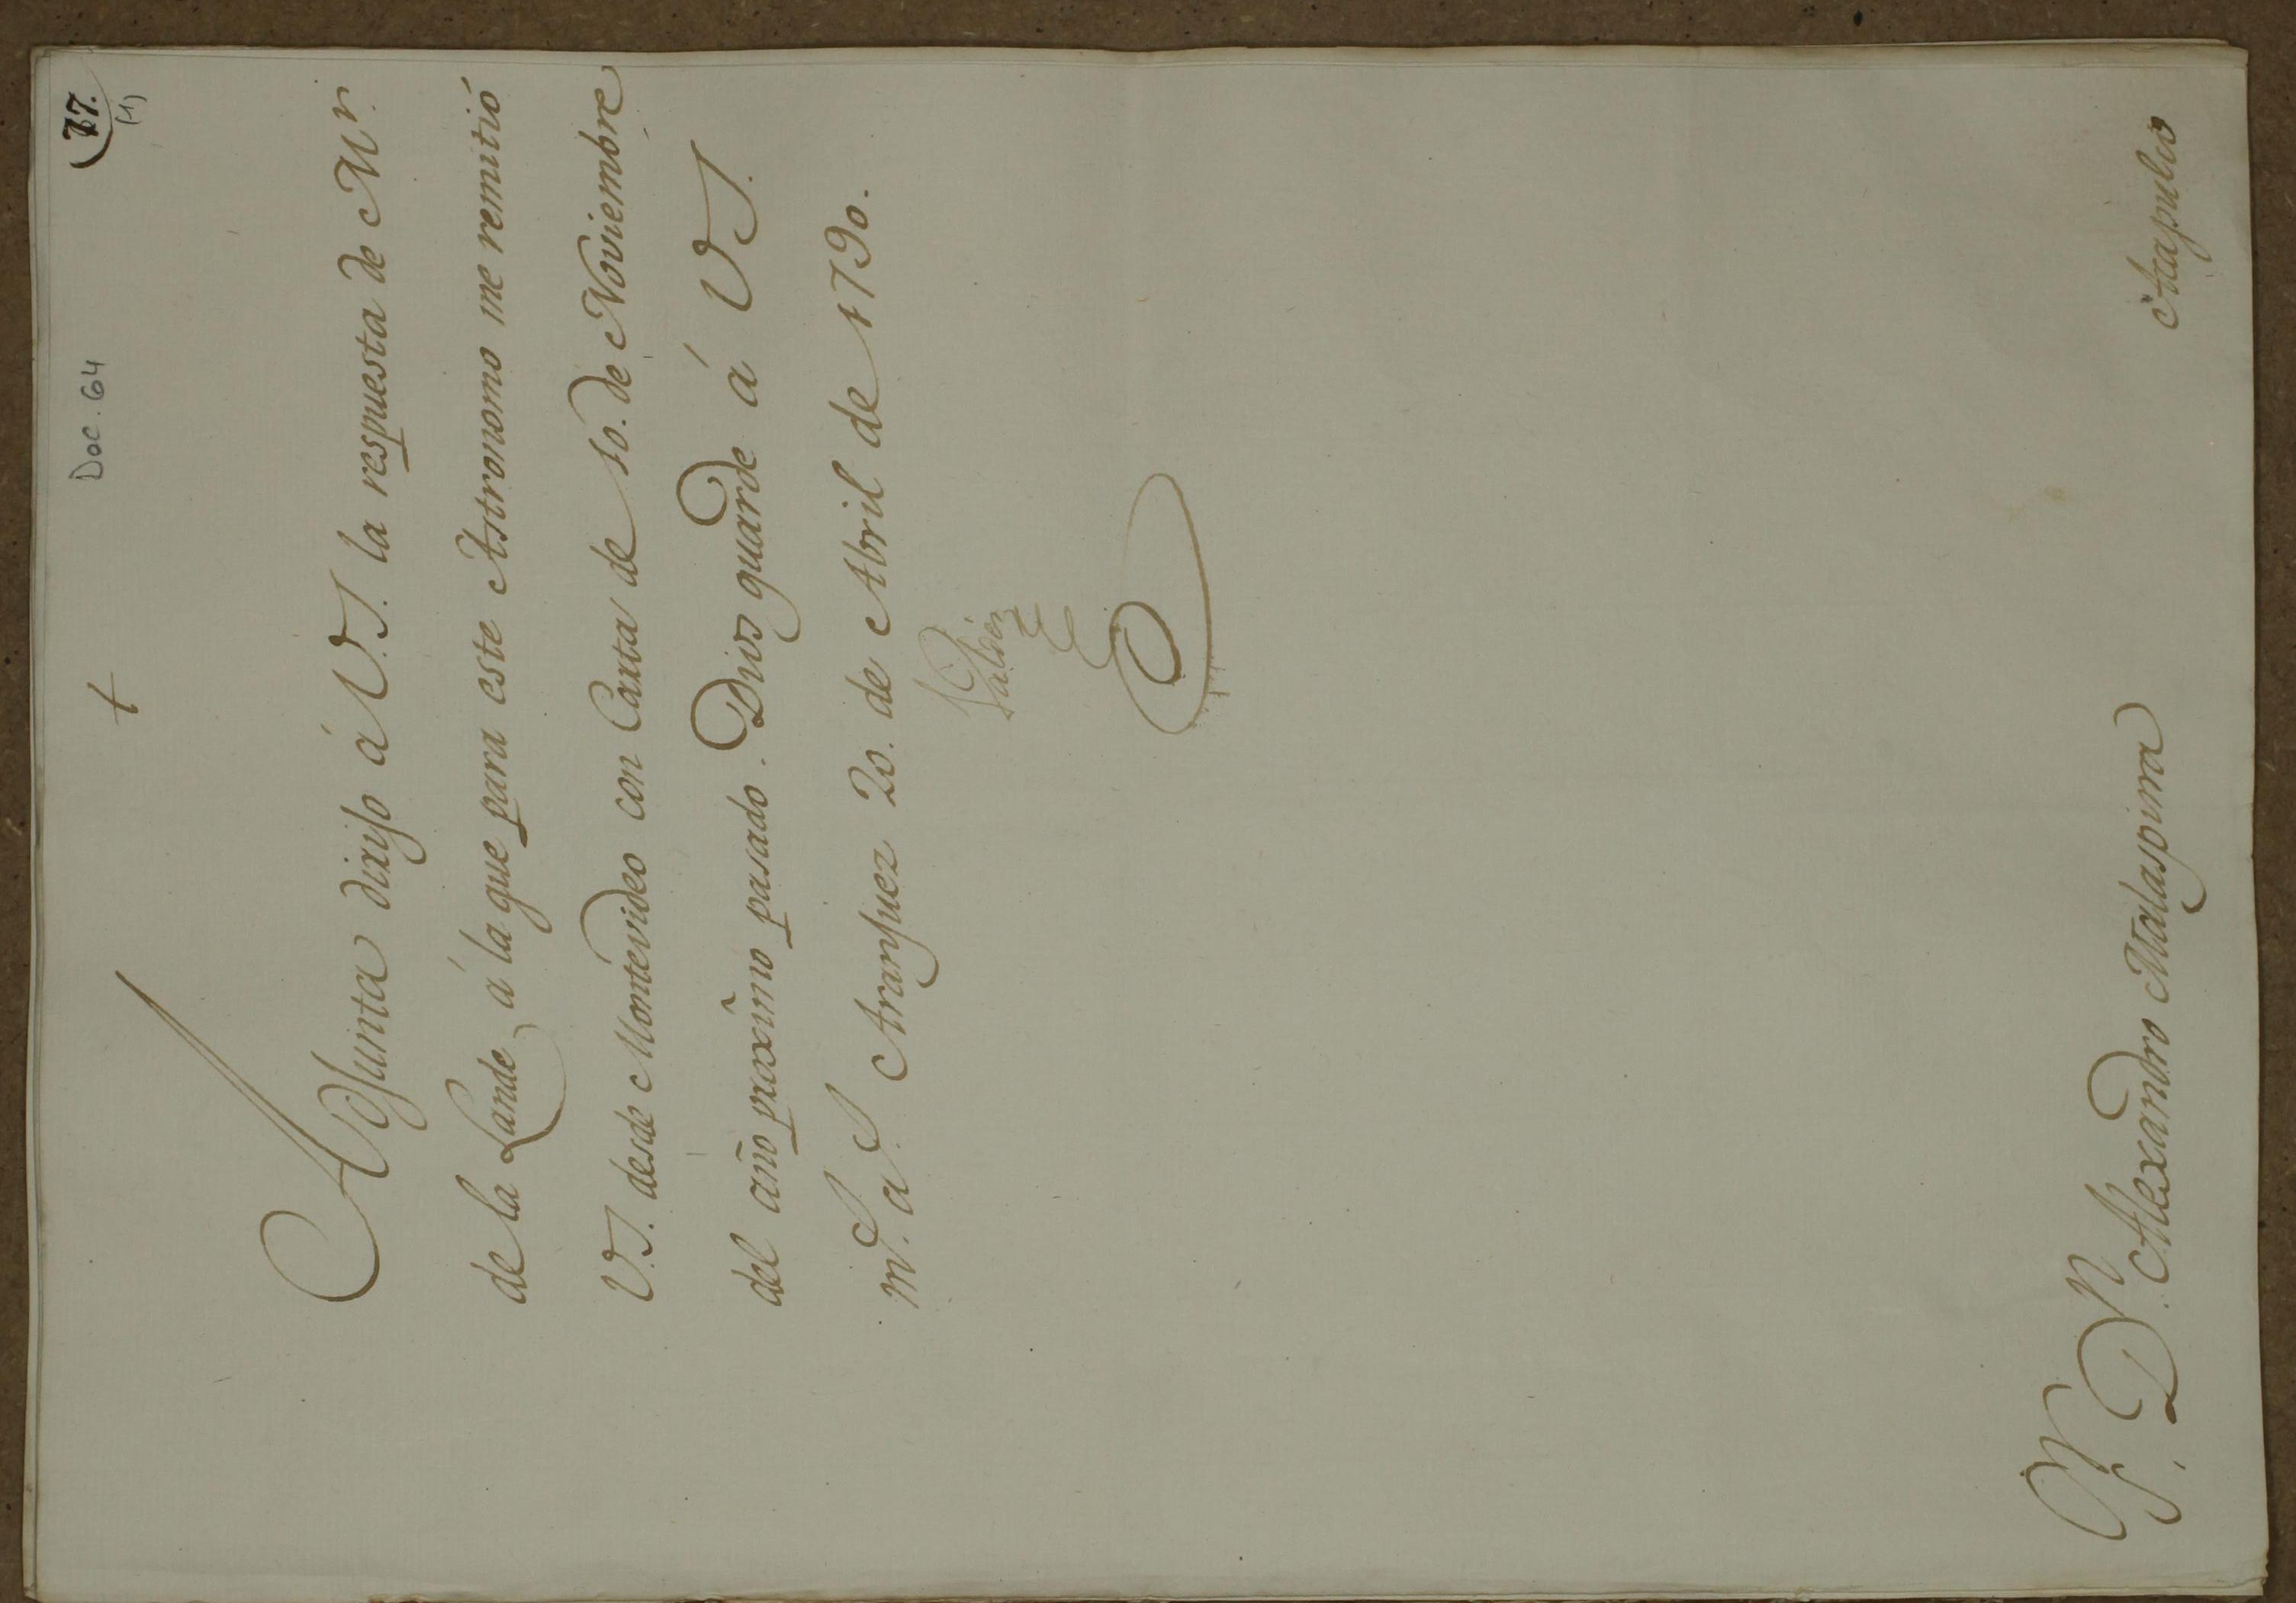 Doc. 64
77.
(1)
+
Adjunta dirijo á V.S. la respuesta de Mr.
de la Lande, á la que para este Astronomo me remitió
V.S. desde Montevideo con Carta de 10. de Noviembre
del año proxîmo pasado. Dios guarde á V.S.
ms. as. Aranjuez 20. de Abril de 1790.
Valdés
Sr. Dn. Alexandro Malaspina
Acapulco